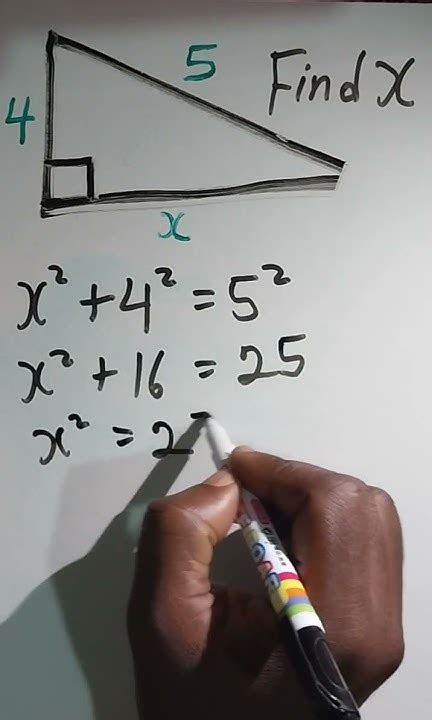 5
Find x
4
x
x² + 4² = 5²
x² + 16 = 25
x² = 2